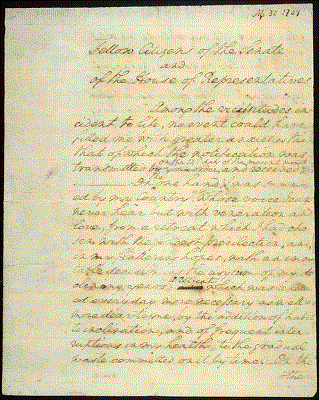 Ap. 30. 1789
Fellow Citizens of the Senate
and
of the House of Representatives
Among the vicissitudes in
cident to life, no event could have
filled me with greater anxieties than
that of which the notification was
transmitted by your order, and received
on the 14th day of the present month
On the one hand, I was summon
ed by my Country, whose voice I can
never hear but with veneration and
love, from a retreat which I had cho
sen with the fondest predilection, and,
in my flattering hopes, with an immu
table decision, as the asylum of my de
clining years: a retreat which was render
ed every day more necessary as well as
more dear to me, by the addition of habit
to inclination, and of frequent inter
ruptions in my health to the gradual
waste committed on it by time. On the
other